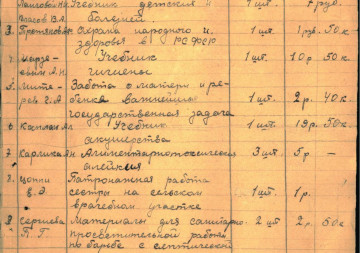 Учебник детских 1 шт. 1 руб.
Власов В.А. болезней.
3. Охрана народного 1 шт. 1 руб. 50 к.
здоровья в РСФСР
4 Учебник 1 шт. 10 р. 50 к.
евич А.Н. гигиены
5. Забота о матери и ре- 1 шт. 2 р. 40 к.
бенке важнейшая
государственная задача
6 Каплан Ал Учебник 1 шт. 19 р. 50 к
акушерства
7 Алиментарнотоксическая 3 шт 5 р –
алейкия
8. Цоппи Патронажная работа
В.Э. сестры на сельском 1 шт 1 р.
врачебном участке
9 Материалы для санитарно 2 шт 2 р. 50 к
П.Г. просветительной работы
по борьбе с септической